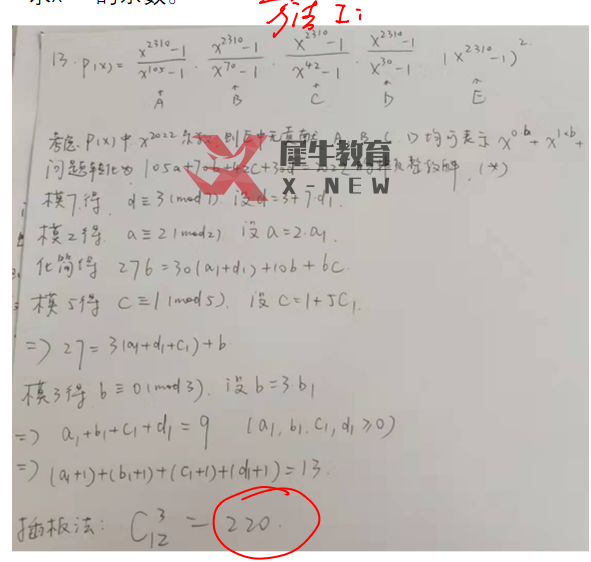 求x 的系数。
方法 I:
13. P(x) = \frac{x^{2310}-1}{x^{105}-1} · \frac{x^{2310}-1}{x^{70}-1} · \frac{x^{2310}-1}{x^{42}-1} · \frac{x^{2310}-1}{x^{30}-1} · (x^{2310}-1)^2.
A B C D E
考虑 P(x) 中 x^{2022} 系数, 则 A, B, C, D 均可表示 x^{0·b} + x^{1×b} +
问题转化为 105a+70b+42c+30d = 2022 整数解. (*)
模7得 d ≡ 3 (mod 7). 设 d = 3+7·d₁.
模2得 a ≡ 2 (mod 2) 设 a = 2·a₁.
化简得 276 = 30(a₁+d₁)+10b+6c.
模5得 c ≡ 1 (mod 5). 设 c = 1+5c₁.
=> 27 = 3(a₁+d₁+c₁)+b
模3得 b ≡ 0 (mod 3). 设 b = 3·b₁
=> a₁+b₁+c₁+d₁ = 9 (a₁, b₁, c₁, d₁ ≥ 0)
=> (a₁+1)+(b₁+1)+(c₁+1)+(d₁+1) = 13.
插板法: C_{12}^{3} = 220.
犀牛教育
X-NEW